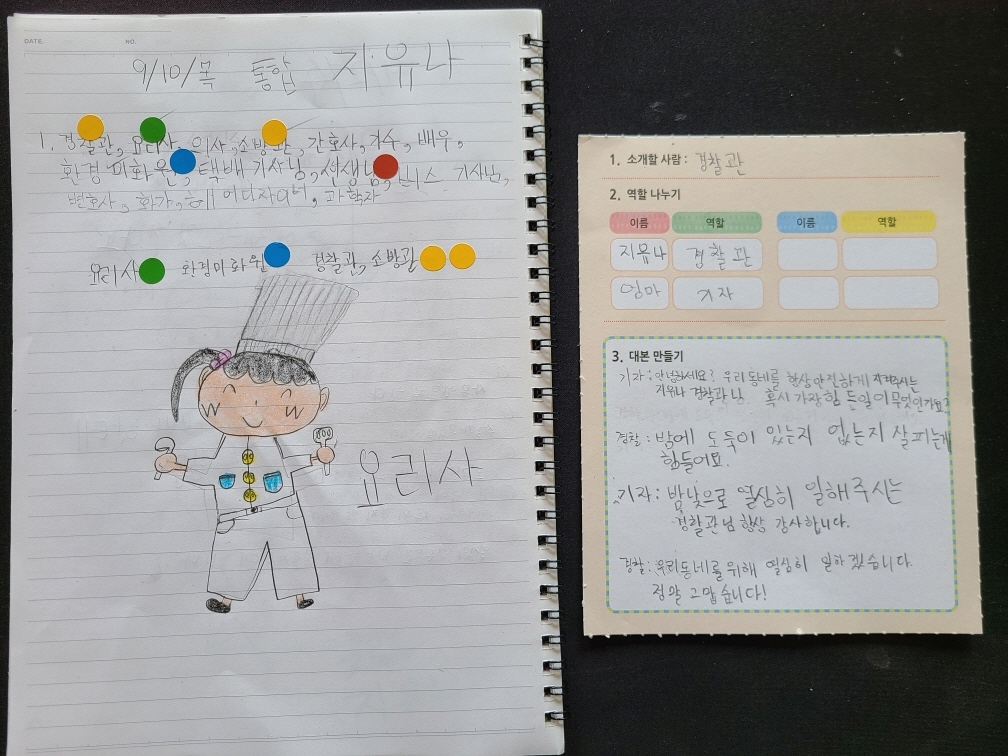 DATE. NO.
9/10/목 통합 지유나
1. 경찰관, 요리사, 의사, 소방관, 간호사, 가수, 배우,
환경 미화원, 택배 기사님, 선생님, 버스 기사님,
변호사, 화가, 헤어디자이너, 과학자
요리사 환경미화원 경찰관, 소방관
요리사
1. 소개할 사람: 경찰관
2. 역할 나누기
이름 역할 이름 역할
지유나 경찰관
엄마 기자
3. 대본 만들기
기자: 안녕하세요? 우리동네를 항상안전하게 지켜주시는
지유나 경찰관님 혹시 가장힘든일이무엇인가요?
경찰: 밤에 도둑이 있는지 없는지 살피는게
힘들어요.
기자: 밤낮으로 열심히 일해주시는
경찰관님 항상 감사합니다.
경찰: 우리동네를위해 열심히 일하겠습니다.
정말 고맙습니다!